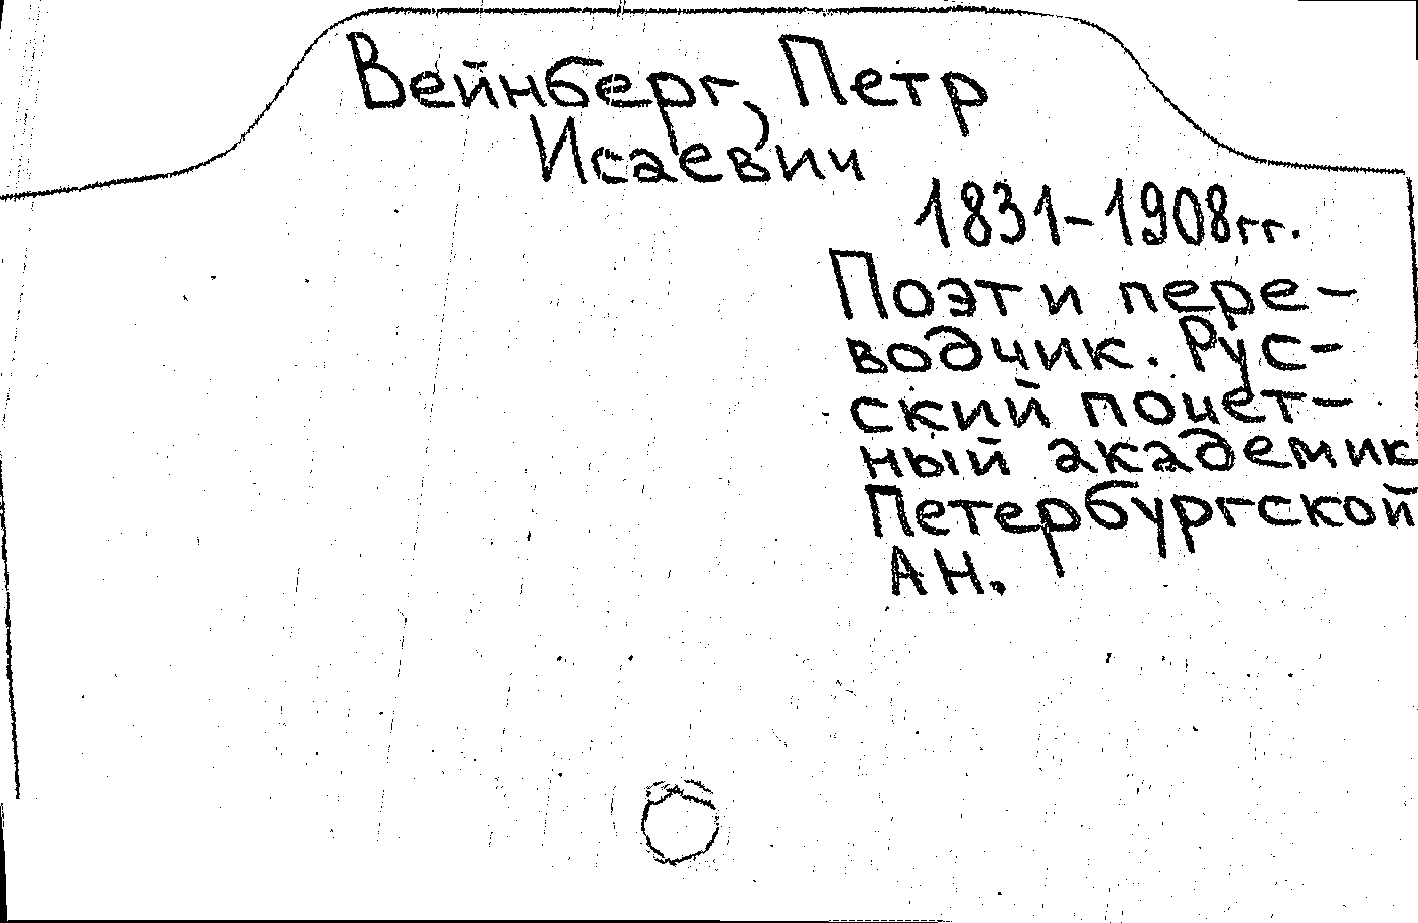 Вейнберг, Петр
Исаевич
1831-1908гг.
Поэт и пере-
водчик. Рус-
ский почет-
ный академик
Петербургской
АН.